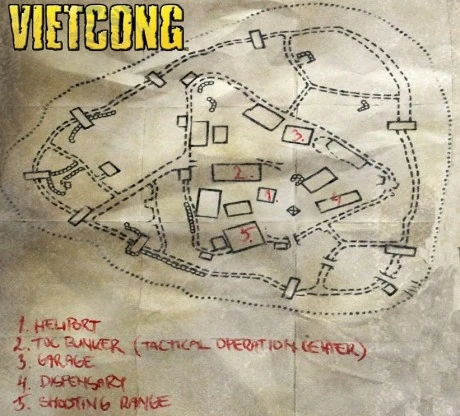 VIETCONG
3.
2.
1.
4.
5.
1. HELIPORT
2. TOC BUNKER (TACTICAL OPERATION CENTER)
3. GARAGE
4. DISPENSARY
5. SHOOTING RANGE